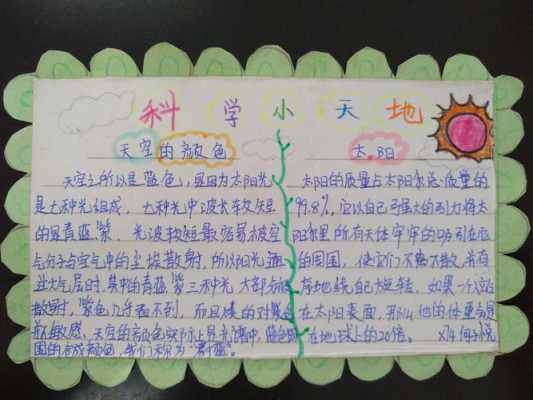 科学小天地
天空的颜色
天空之所以是蓝色,是因为太阳光
是七种光组成,七种光中波长较短
的是青蓝紫,光波较短最容易被空
气分子与空气中的尘埃散射,所以阳光
过大气层时,其中的青蓝紫三种光大部分
散射,紫色几乎看不到,而且
敏感,天空的颜色实际上是光谱中蓝色
的合成颜色,我们称为"蔚蓝"。
太阳
太阳的质量占太阳系总质量的
99.8%,它以自己强大的引力将太
阳系里所有天体牢牢的吸引在
的周围,使它们不离不散,井有
有序地绕自己旋转,如果一个人站
在太阳表面,那么他的体重会是
在地球上的20倍。